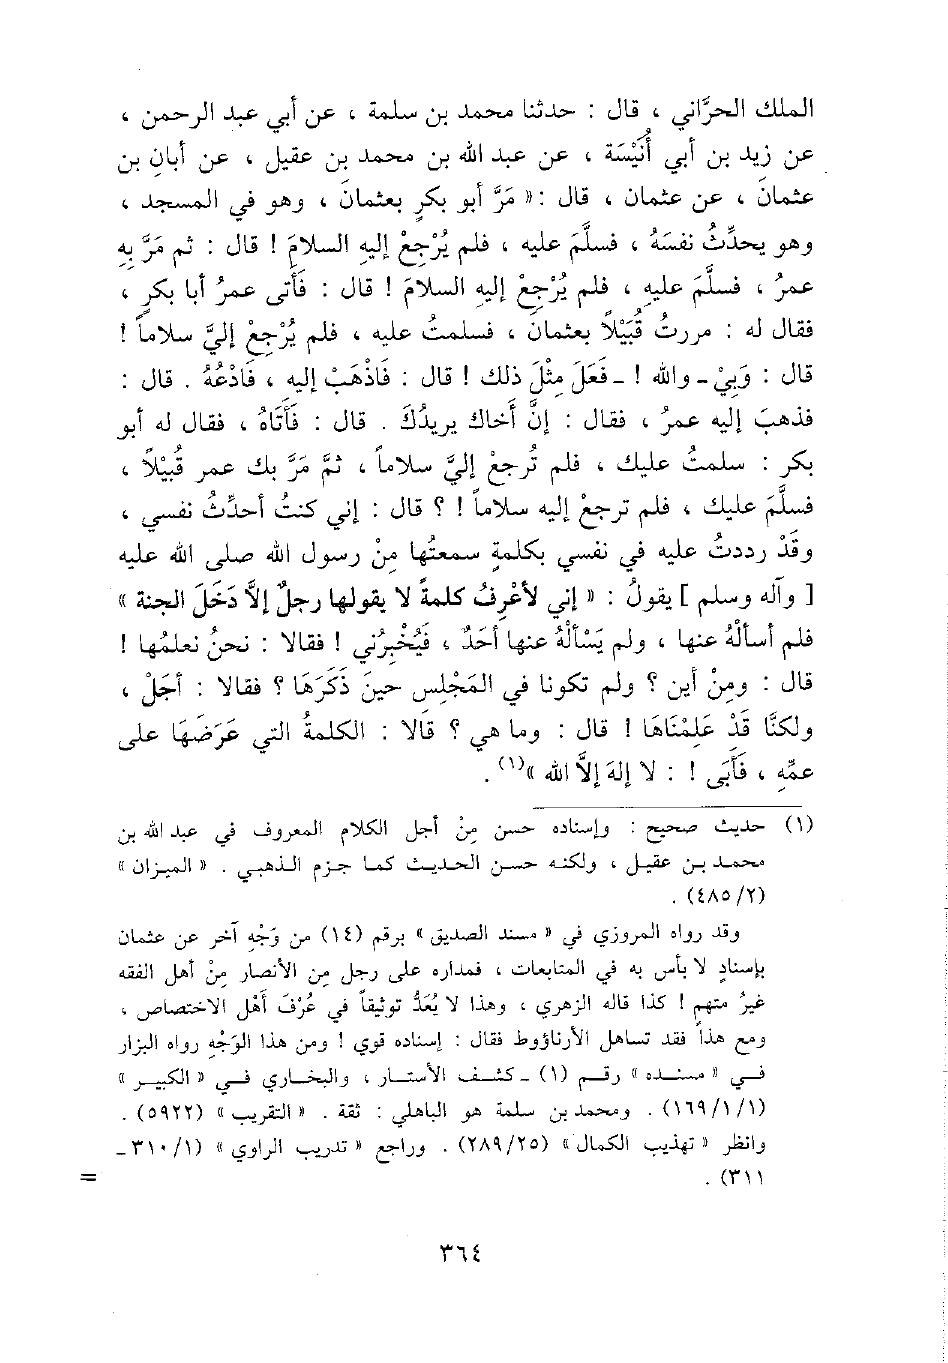 الملك الحرَّاني ، قال : حدثنا محمد بن سلمة ، عن أبي عبد الرحمن ،
عن زيد بن أبي أُنَيْسَة ، عن عبد الله بن محمد بن عقيل ، عن أبان بن
عثمانَ ، عن عثمان ، قال :« مَرَّ أبو بكرٍ بعثمانَ ، وهو في المسجد ،
وهو يحدِّثُ نفسَهُ ، فسلَّم عليه ، فلم يُرْجِعْ إليه السلامَ ! قال : ثم مَرَّ بِهِ
عمرُ ، فسلَّمَ عليهِ ، فلم يُرْجِعْ إليهِ السلامَ ! قال : فَأَتى عمرُ أبا بكرٍ ،
فقال له : مررتُ قُبَيْلاً بعثمانَ ، فسلمتُ عليه ، فلم يُرْجِعْ إليَّ سلاماً !
قال : وَبِيْ - والله ! - فَعَلَ مِثْلَ ذلك ! قال : فَاذْهَبْ إليه ، فَادْعُهُ . قال :
فذهبَ إليه عمرُ ، فقال : إنَّ أَخاك يريدُكَ . قال : فَأَتَاهُ ، فقال له أبو
بكر : سلمتُ عليك ، فلم تُرجعْ إليَّ سلاماً ، ثمَّ مَرَّ بك عمر قُبَيْلاً ،
فسلَّمَ عليك ، فلم ترجعْ إليه سلاماً ! ؟ قال : إني كنتُ أحدِّثُ نفسي ،
وقَدْ رددتُ عليه في نفسي بكلمةٍ سمعتُها مِنْ رسول الله صلى الله عليه
[ وآله وسلم ] يقولُ : « إني لأَعْرِفُ كلمةً لا يقولها رجلٌ إلاَّ دَخَلَ الجنة »
فلم أسألْهُ عنها ، ولم يَسْأَلْهُ عنها أَحَدٌ ، فَيُخْبِرُني ! فقالا : نحنُ نعلمُها !
قال : ومِنْ أين ؟ ولم تكونا في المَجْلِسِ حينَ ذَكَرَهَا ؟ فقالا : أجَلْ ،
ولكنَّا قَدْ عَلِمْنَاهَا ! قال : وما هي ؟ قَالا : الكلمةُ التي عَرَضَهَا على
عمِّهِ ، فَأَبَى ! : لا إلهَ إلاَّ الله »(١) .
(١) حديث صحيح : وإسناده حسن مِنْ أجل الكلام المعروف في عبد الله بن
محمد بن عقيل ، ولكنه حسن الحديث كما جزم الذهبي . « الميزان »
(٢/ ٤٨٥) .
وقد رواه المروزي في « مسند الصديق » برقم (١٤) من وَجْهٍ آخر عن عثمان
بإسنادٍ لا بأس به في المتابعات ، فمداره على رجل مِن الأنصار مِنْ أهل الفقه
غيرُ متهم ! كذا قاله الزهري ، وهذا لا يُعَدُّ توثيقاً في عُرْفِ أهْل الاختصاص ،
ومع هذا فقد تساهل الأرناؤوط فقال : إسناده قوي ! ومن هذا الوَجْهِ رواه البزار
في « مسنده » رقم (١) - كشف الأستار ، والبخاري في « الكبير »
(١/ ١/ ١٦٩) . ومحمد بن سلمة هو الباهلي : ثقة . « التقريب » (٥٩٢٢) .
وانظر « تهذيب الكمال » (٢٥/ ٢٨٩) . وراجع « تدريب الراوي » (١/ ٣١٠ -
٣١١) .
=
٣٦٤